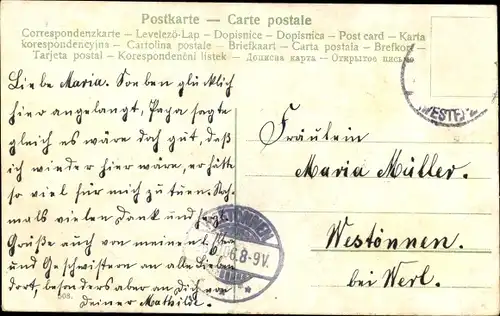 Postkarte — Carte postale
Correspondenzkarte – Levelező-Lap – Dopisnice – Dopisnica – Post card – Karta
korespondencyjna – Cartolina postale – Briefkaart – Carta postala – Brefkort –
Tarjeta postal – Korespondenční listek – Дописна карта – Открытое письмо
Liebe Maria. Soeben glücklich
hier angelangt, Papa sagte
gleich es wäre doch gut, daß
ich wieder hier wäre, er hätte
so viel für mich zu tuen. Noch-
mals vielen Dank und herzl.
Grüße auch von meinen l. Eltern
und Geschwistern an alle Lieben
dort, besonders aber an Dich von
Deiner Mathilde.
508.
Fräulein
Maria Müller.
Westönnen.
bei Werl.
WESTF.
6.8-9V.